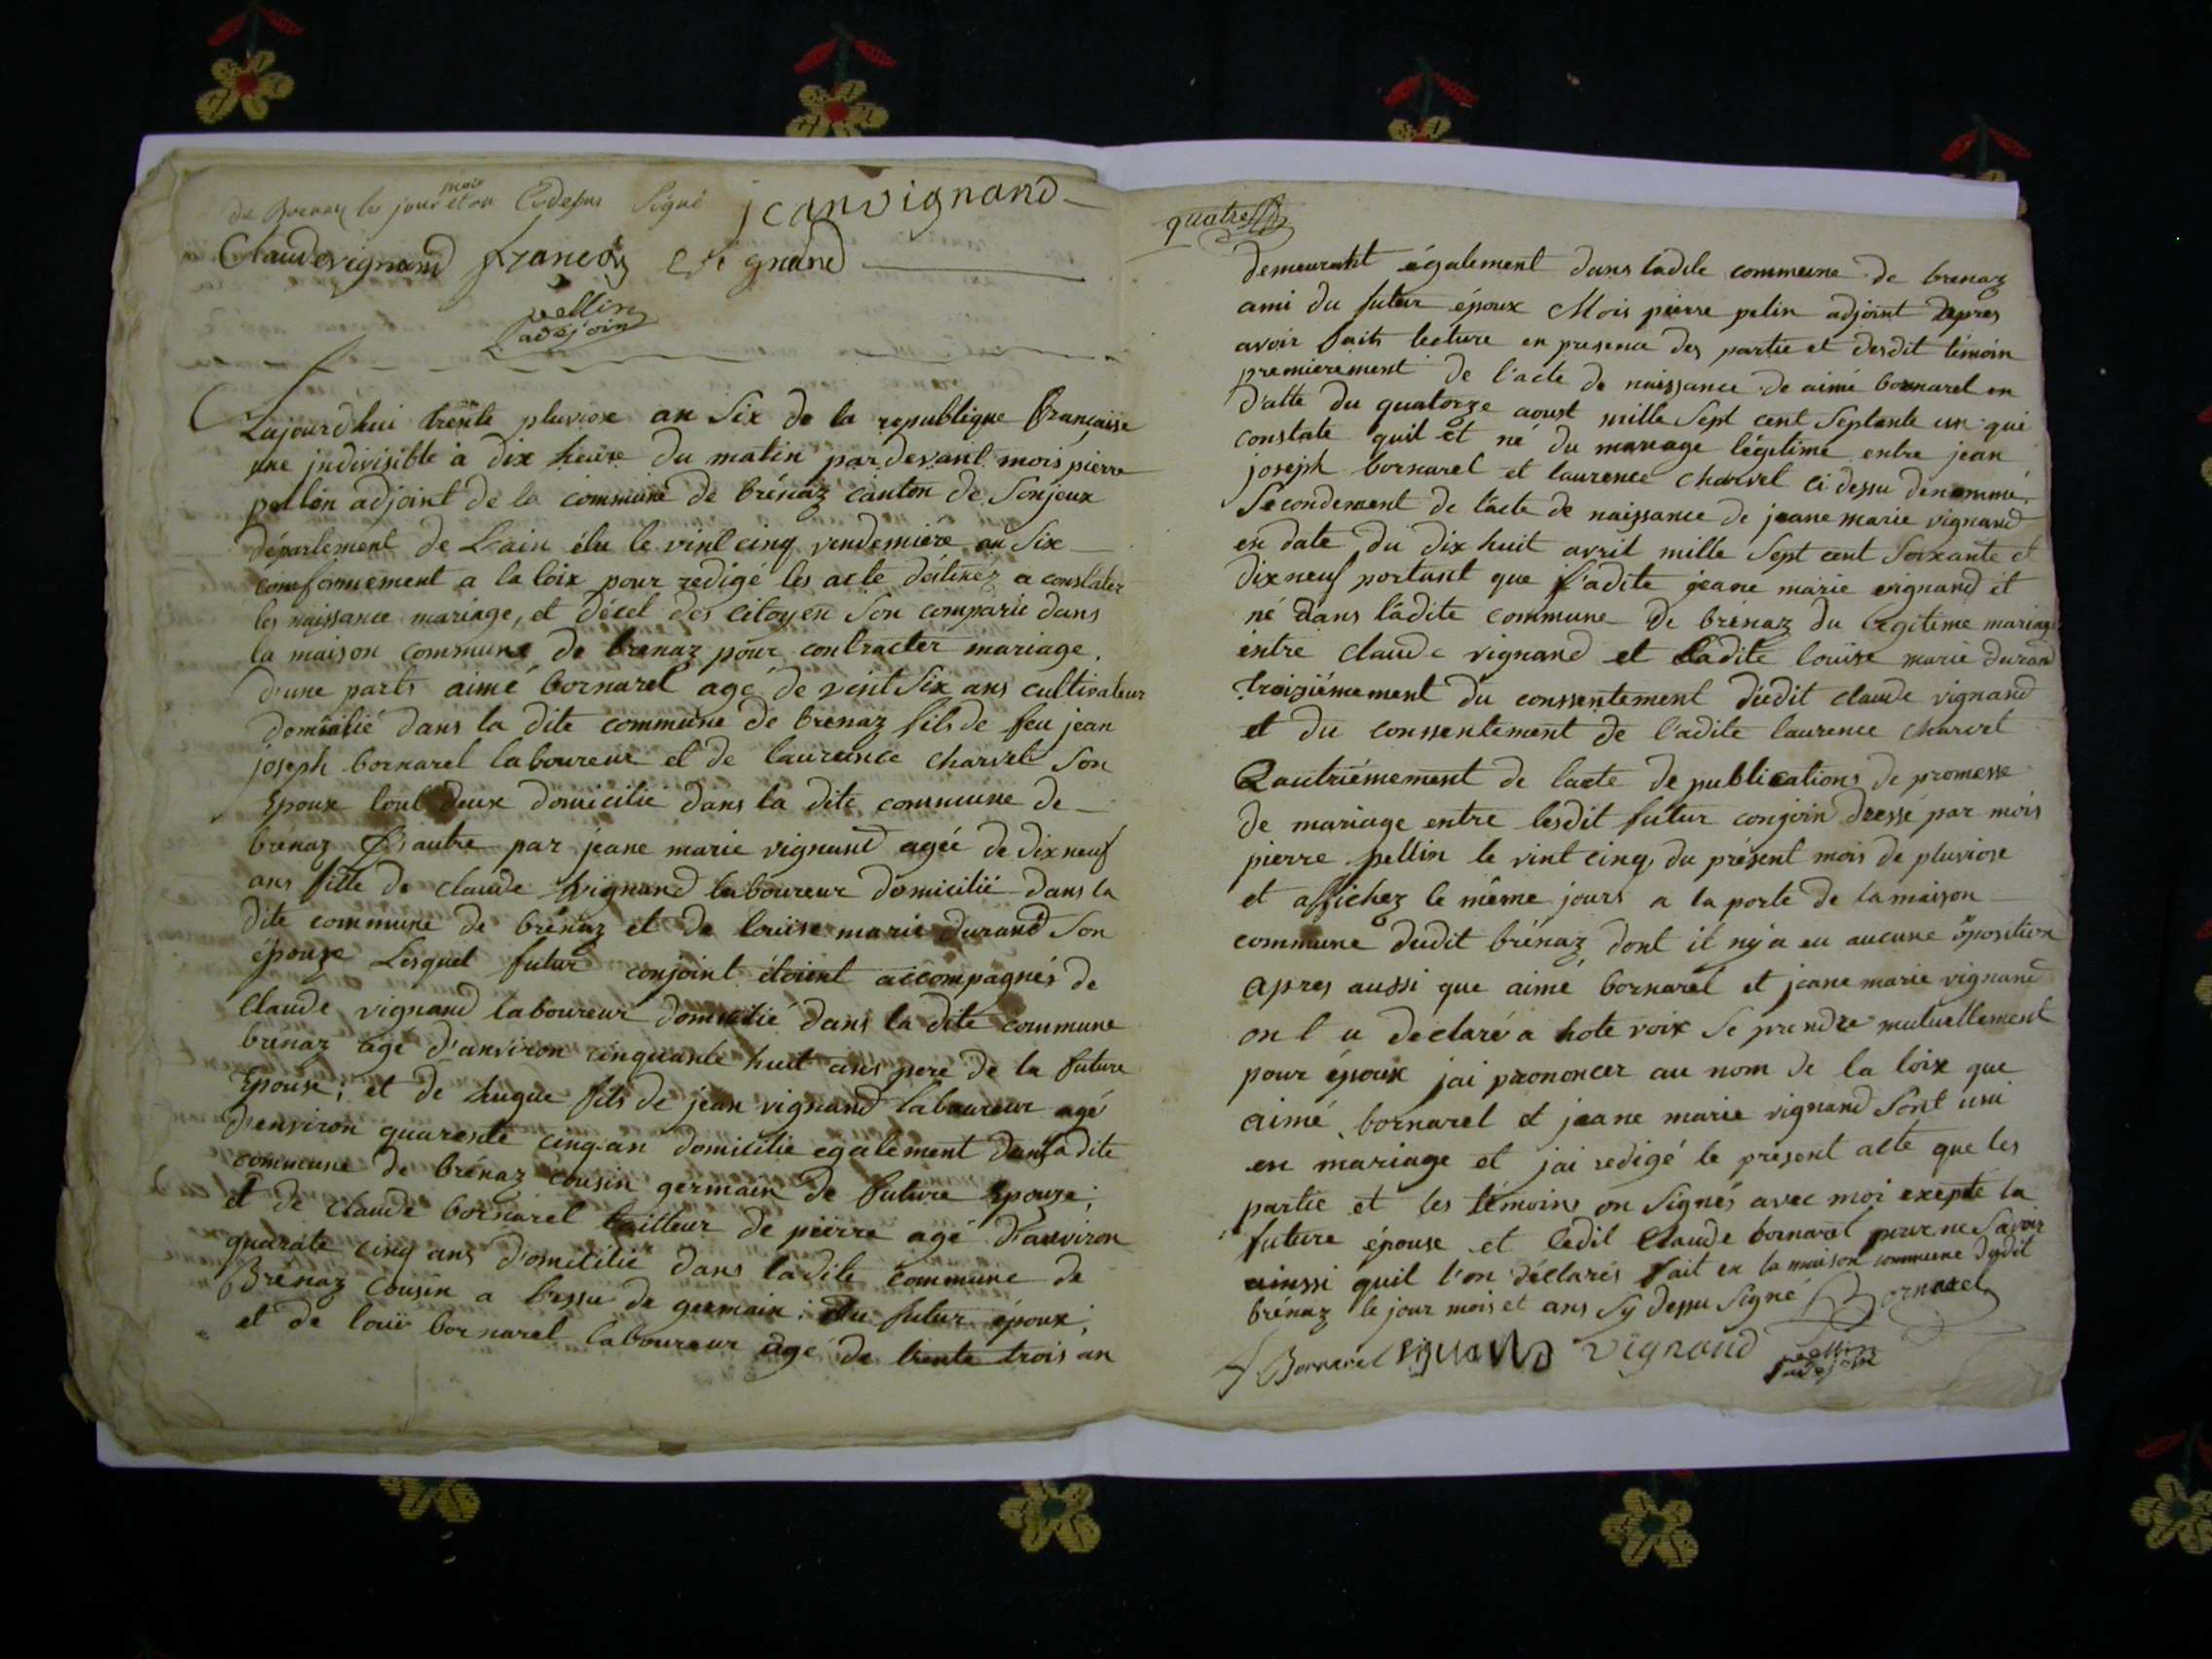 de Brenaz les jour mois et an Cidesus Signé jeanvignand
Claudevignand francois vignand
pellin
adejoin
Lajourdhui trente pluviose an Six de la republique française
une jndivisible a dix heure du matin pardevant mois pierre
pellin adjoint de la commune de brénaz canton de Sonjeux
département de Lain élu le vint cinq vendemiére an Six
comformement a la loix pour redigé les acte déstinéz a constater
les naissance mariage, et décel des citoyen Son comparie dans
la maison commune de brenaz pour contracter mariage.
d'une parts aimé bornarel agé de vint Six ans cultivateur
domicilié dans la dite commune de brénaz fils de feu jean
joseph bornarel laboureur et de laurence charvet Son
Epouse tout deux domicilié dans la dite commune de
brénaz D'autre par jeane marie vignand agée de dix neuf
ans fille de claude vignand laboureur domicilié dans la
dite commune de brénaz et de louise marie durand Son
épouse Lesquel futur conjoint étoient accompagnés de
Claude vignand laboureur domicilié dans la dite commune
brénaz agé d'anviron cinquante huit ans pere de la future
Epouse; et de hugue fils de jean vignand laboureur agé
d'environ quarente cinq an domicilié egalement dans ladite
commune de brénaz cousin germain de future Epouze;
et de claude bornarel tailleur de pierre agé d'anviron
quarate cinq ans domicilié dans ladite commune de
Brénaz Cousin a bessu de germain du futur époux;
et de louis bornarel laboureur agé de trente trois an
quatre
demeurant également dans ladite commune de brenaz
ami du futur époux Mois pierre pelin adjoint Apres
avoir fait lecture en presence des partie et desdit témoin
premierement de l'acte de naissance de aimé bornarel en
d'atte du quatorze aoust mille Sept cent Septante un qui
constate quil et né du mariage légitime entre jean
joseph bornarel et laurence charvet ci dessu denommé.
Secondement de l'acte de naissance de jeane marie vignand
en date du dix huit avril mille Sept cent Soixante et
dix neuf portant que l'adite jeane marie vignand et
né dans ladite commune de brénaz du légitime mariage
entre claude vignand et ladite louise marie durand
troiziémement du conssentement dudit claude vignand
et du conssentement de l'adite laurence charvet
Qautriémement de lacte de publications de promesse
de mariage entre lesdit futur conjoin dressé par mois
pierre pellin le vint cinq du présent mois de pluviose
et affichez le même jours a la porte de la maison
commune dudit brénaz dont il ny a eu aucune oposition
apres aussi que aimé bornarel et jeane marie vignand
on l u declaré a hote voix Se prendre mutuellement
pour époux jai prononcer au nom de la loix que
aimé bornarel et jeane marie vignand Sont uni
en mariage et jai redigé le présent acte que les
partie et les témoins on Signés avec moi exepté la
future épouse et ledit Claude bornarel pour ne Savoir
ainssi quil l'on déclarés fait en la maison commune dudit
brénaz le jour mois et ans Sy dessu Signé Bornarel
Bornarel vignand vignand pellin
adejoin